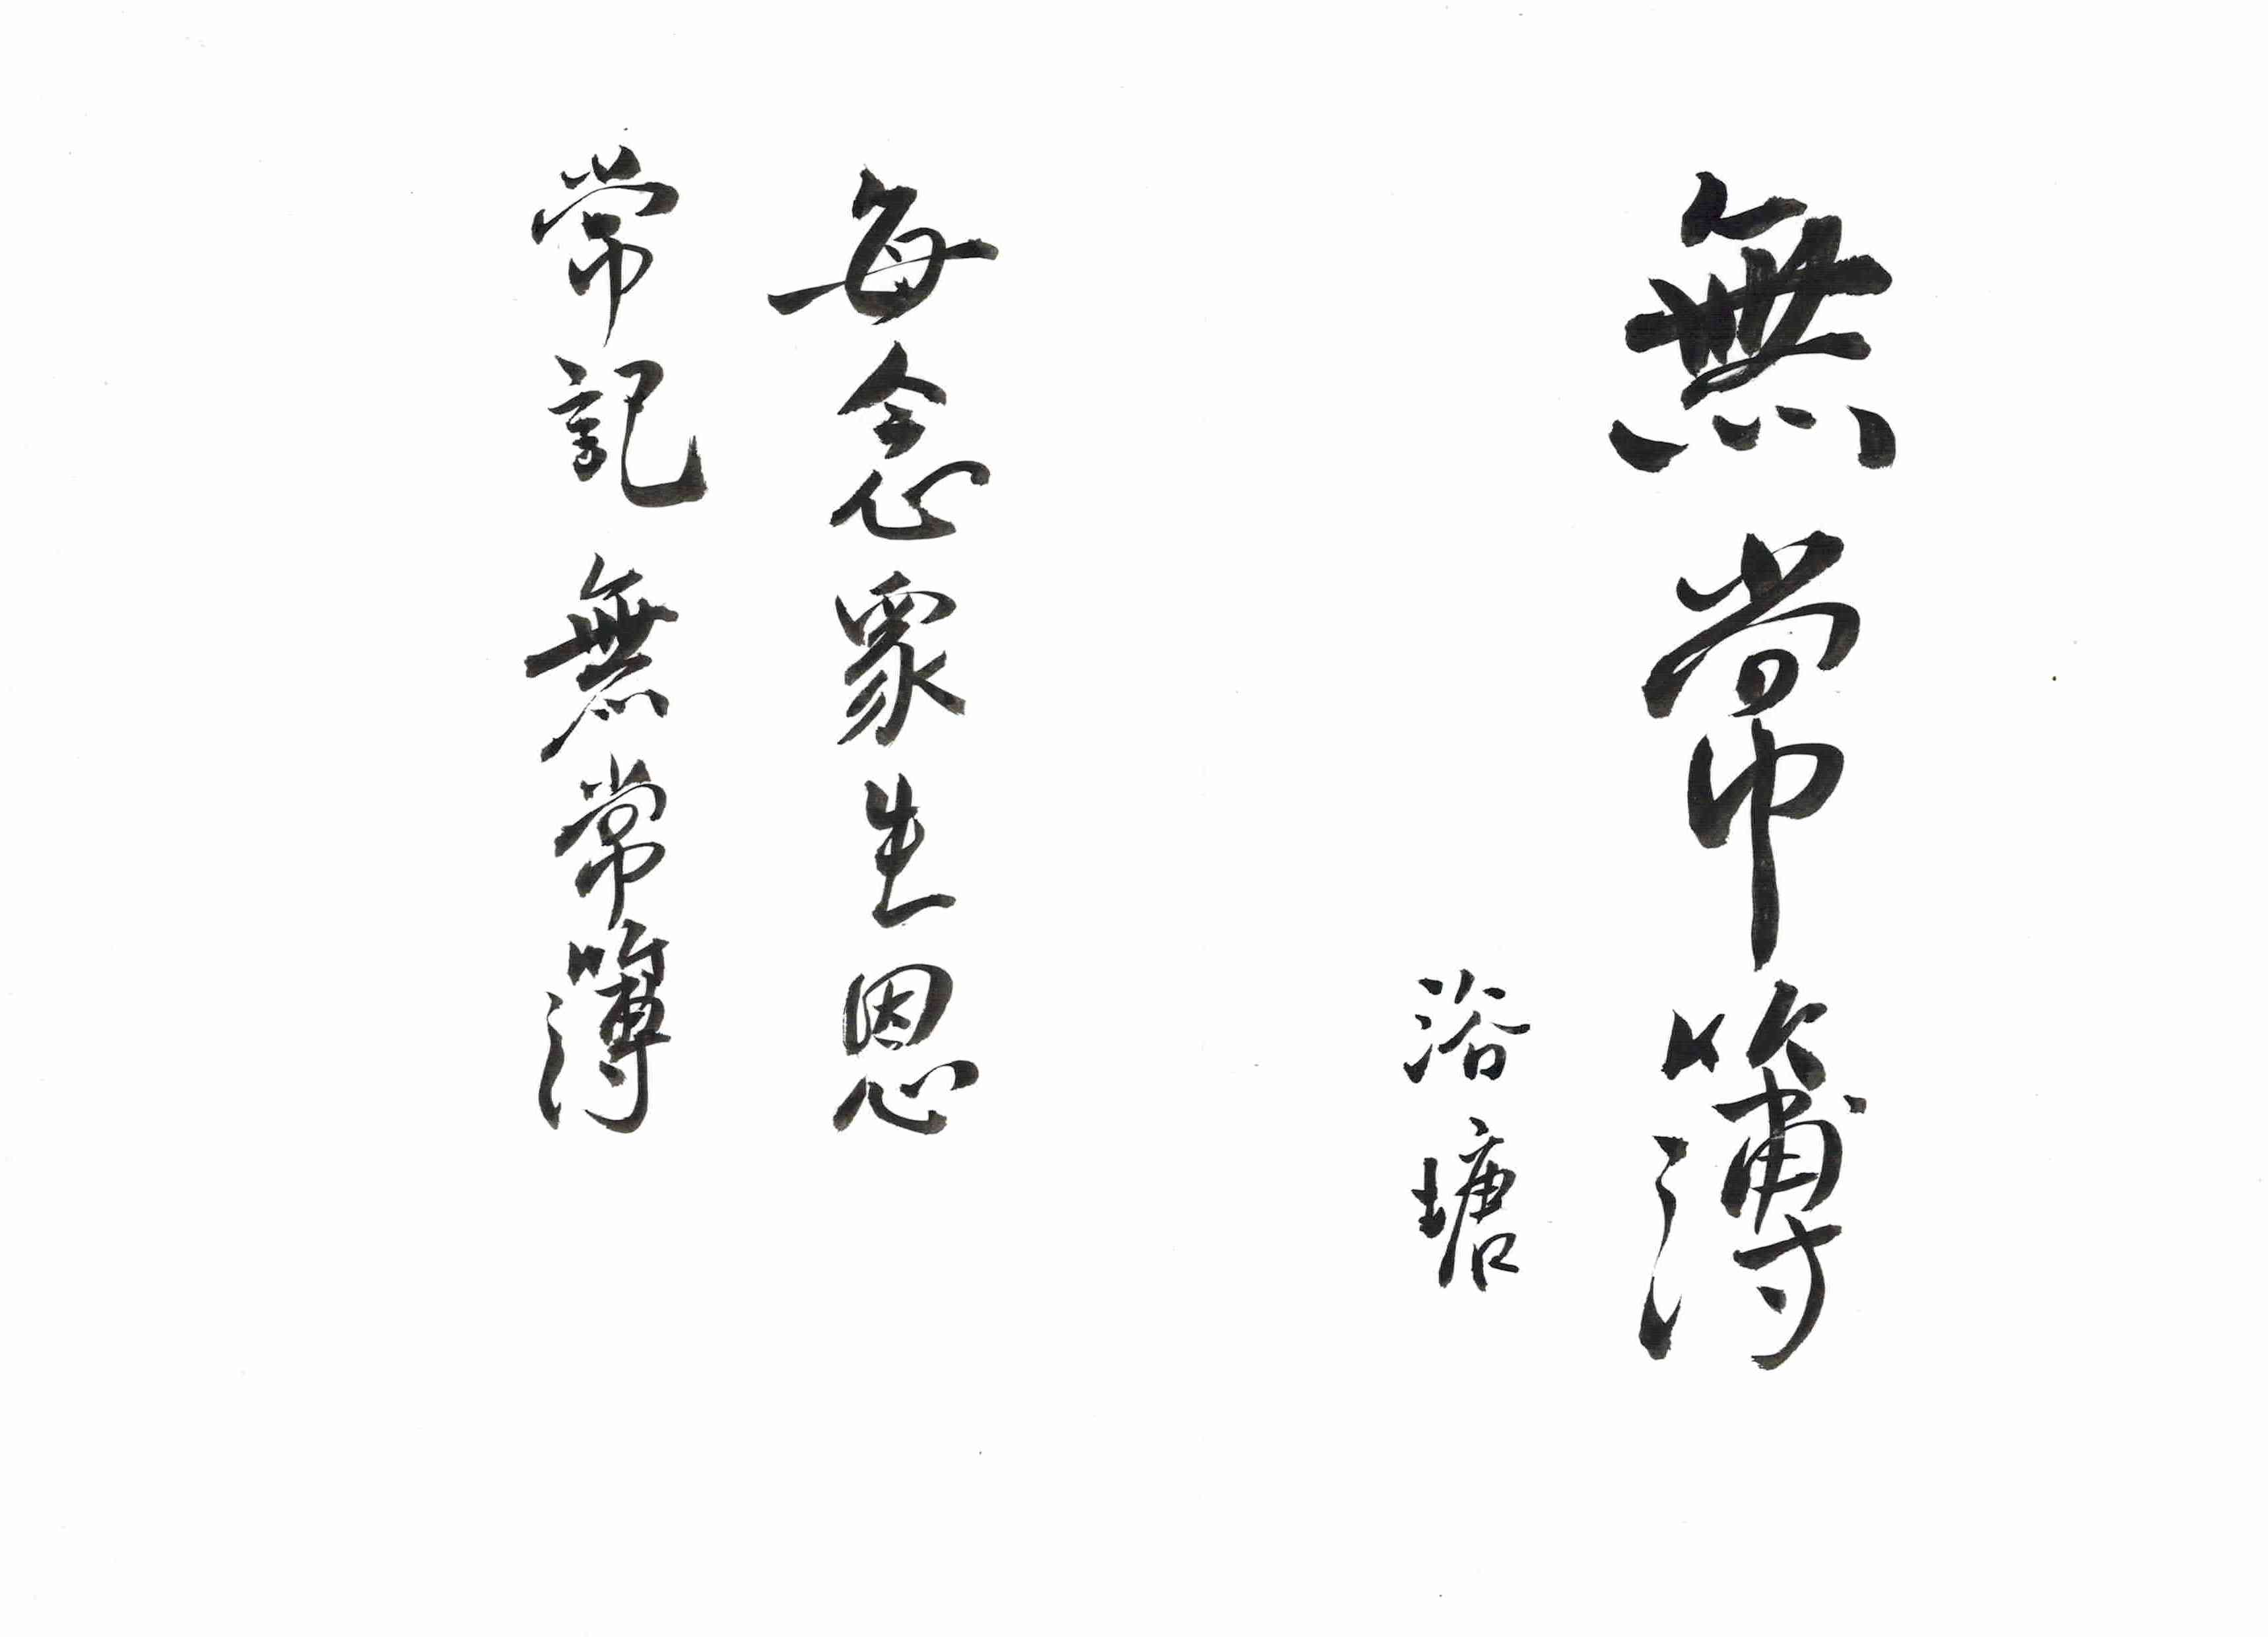 無常簿
浴塘
每念眾生恩
常記無常簿